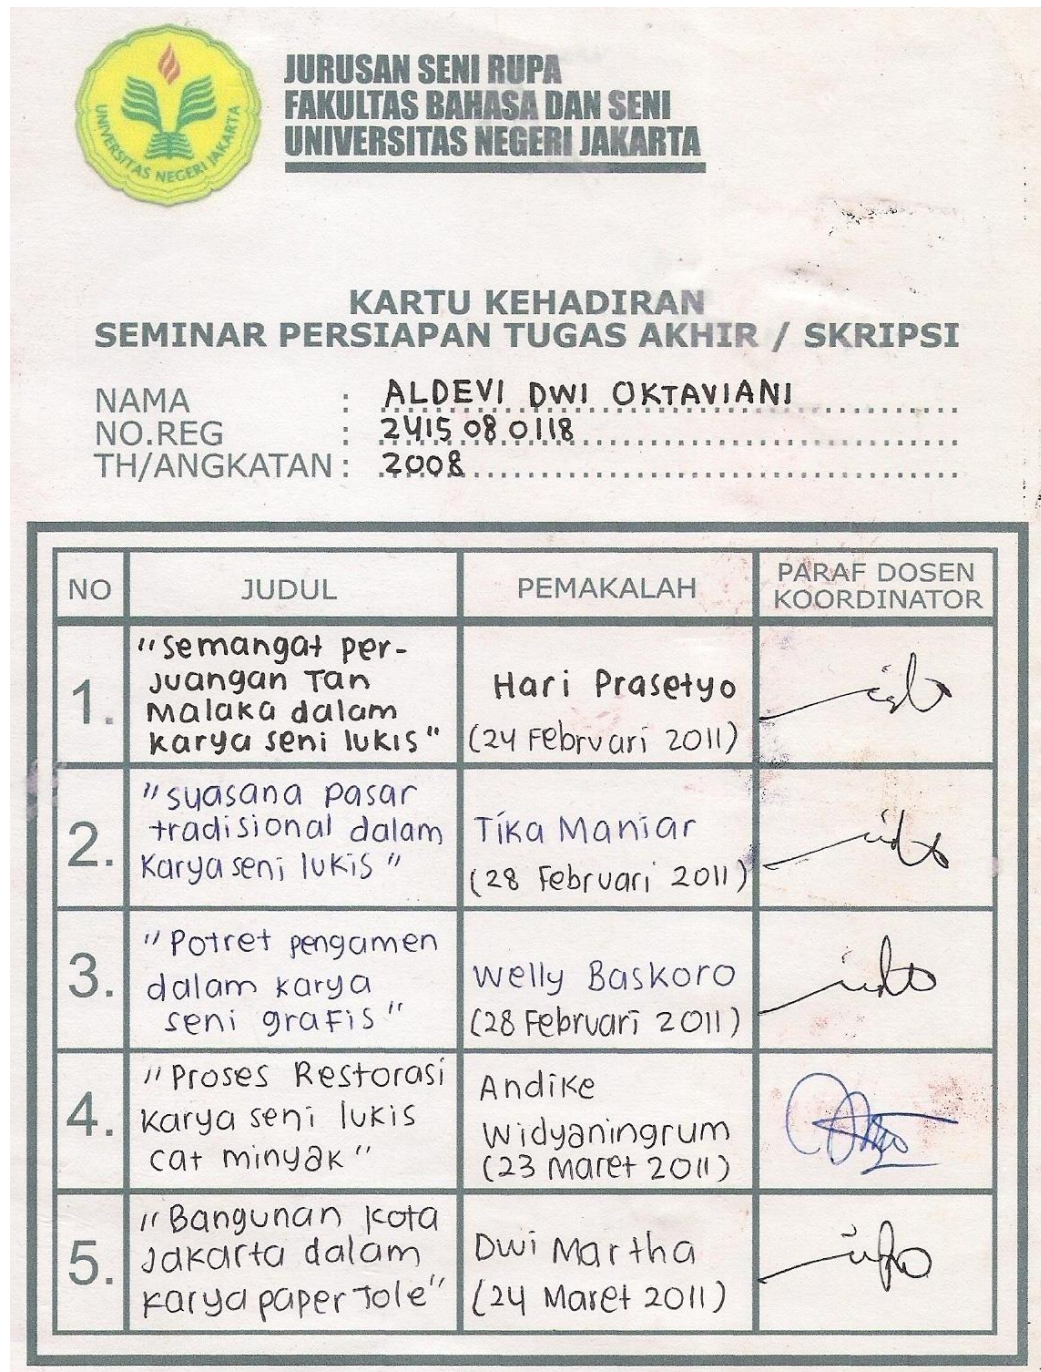 UNIVERSITAS NEGERI JAKARTA
JURUSAN SENI RUPA
FAKULTAS BAHASA DAN SENI
UNIVERSITAS NEGERI JAKARTA
KARTU KEHADIRAN
SEMINAR PERSIAPAN TUGAS AKHIR / SKRIPSI
NAMA : ALDEVI DWI OKTAVIANI
NO.REG : 2415 08 0118
TH/ANGKATAN : 2008
NO
JUDUL
PEMAKALAH
PARAF DOSEN
KOORDINATOR
1.
"Semangat per-
Juangan Tan
Malaka dalam
karya seni lukis"
Hari Prasetyo
(24 Februari 2011)
2.
"suasana pasar
tradisional dalam
karya seni lukis"
Tika Maniar
(28 Februari 2011)
3.
"Potret pengamen
dalam karya
seni grafis"
Welly Baskoro
(28 Februari 2011)
4.
"Proses Restorasi
karya seni lukis
cat minyak"
Andike
Widyaningrum
(23 Maret 2011)
5.
"Bangunan kota
Jakarta dalam
karya paper Tole"
Dwi Martha
(24 Maret 2011)